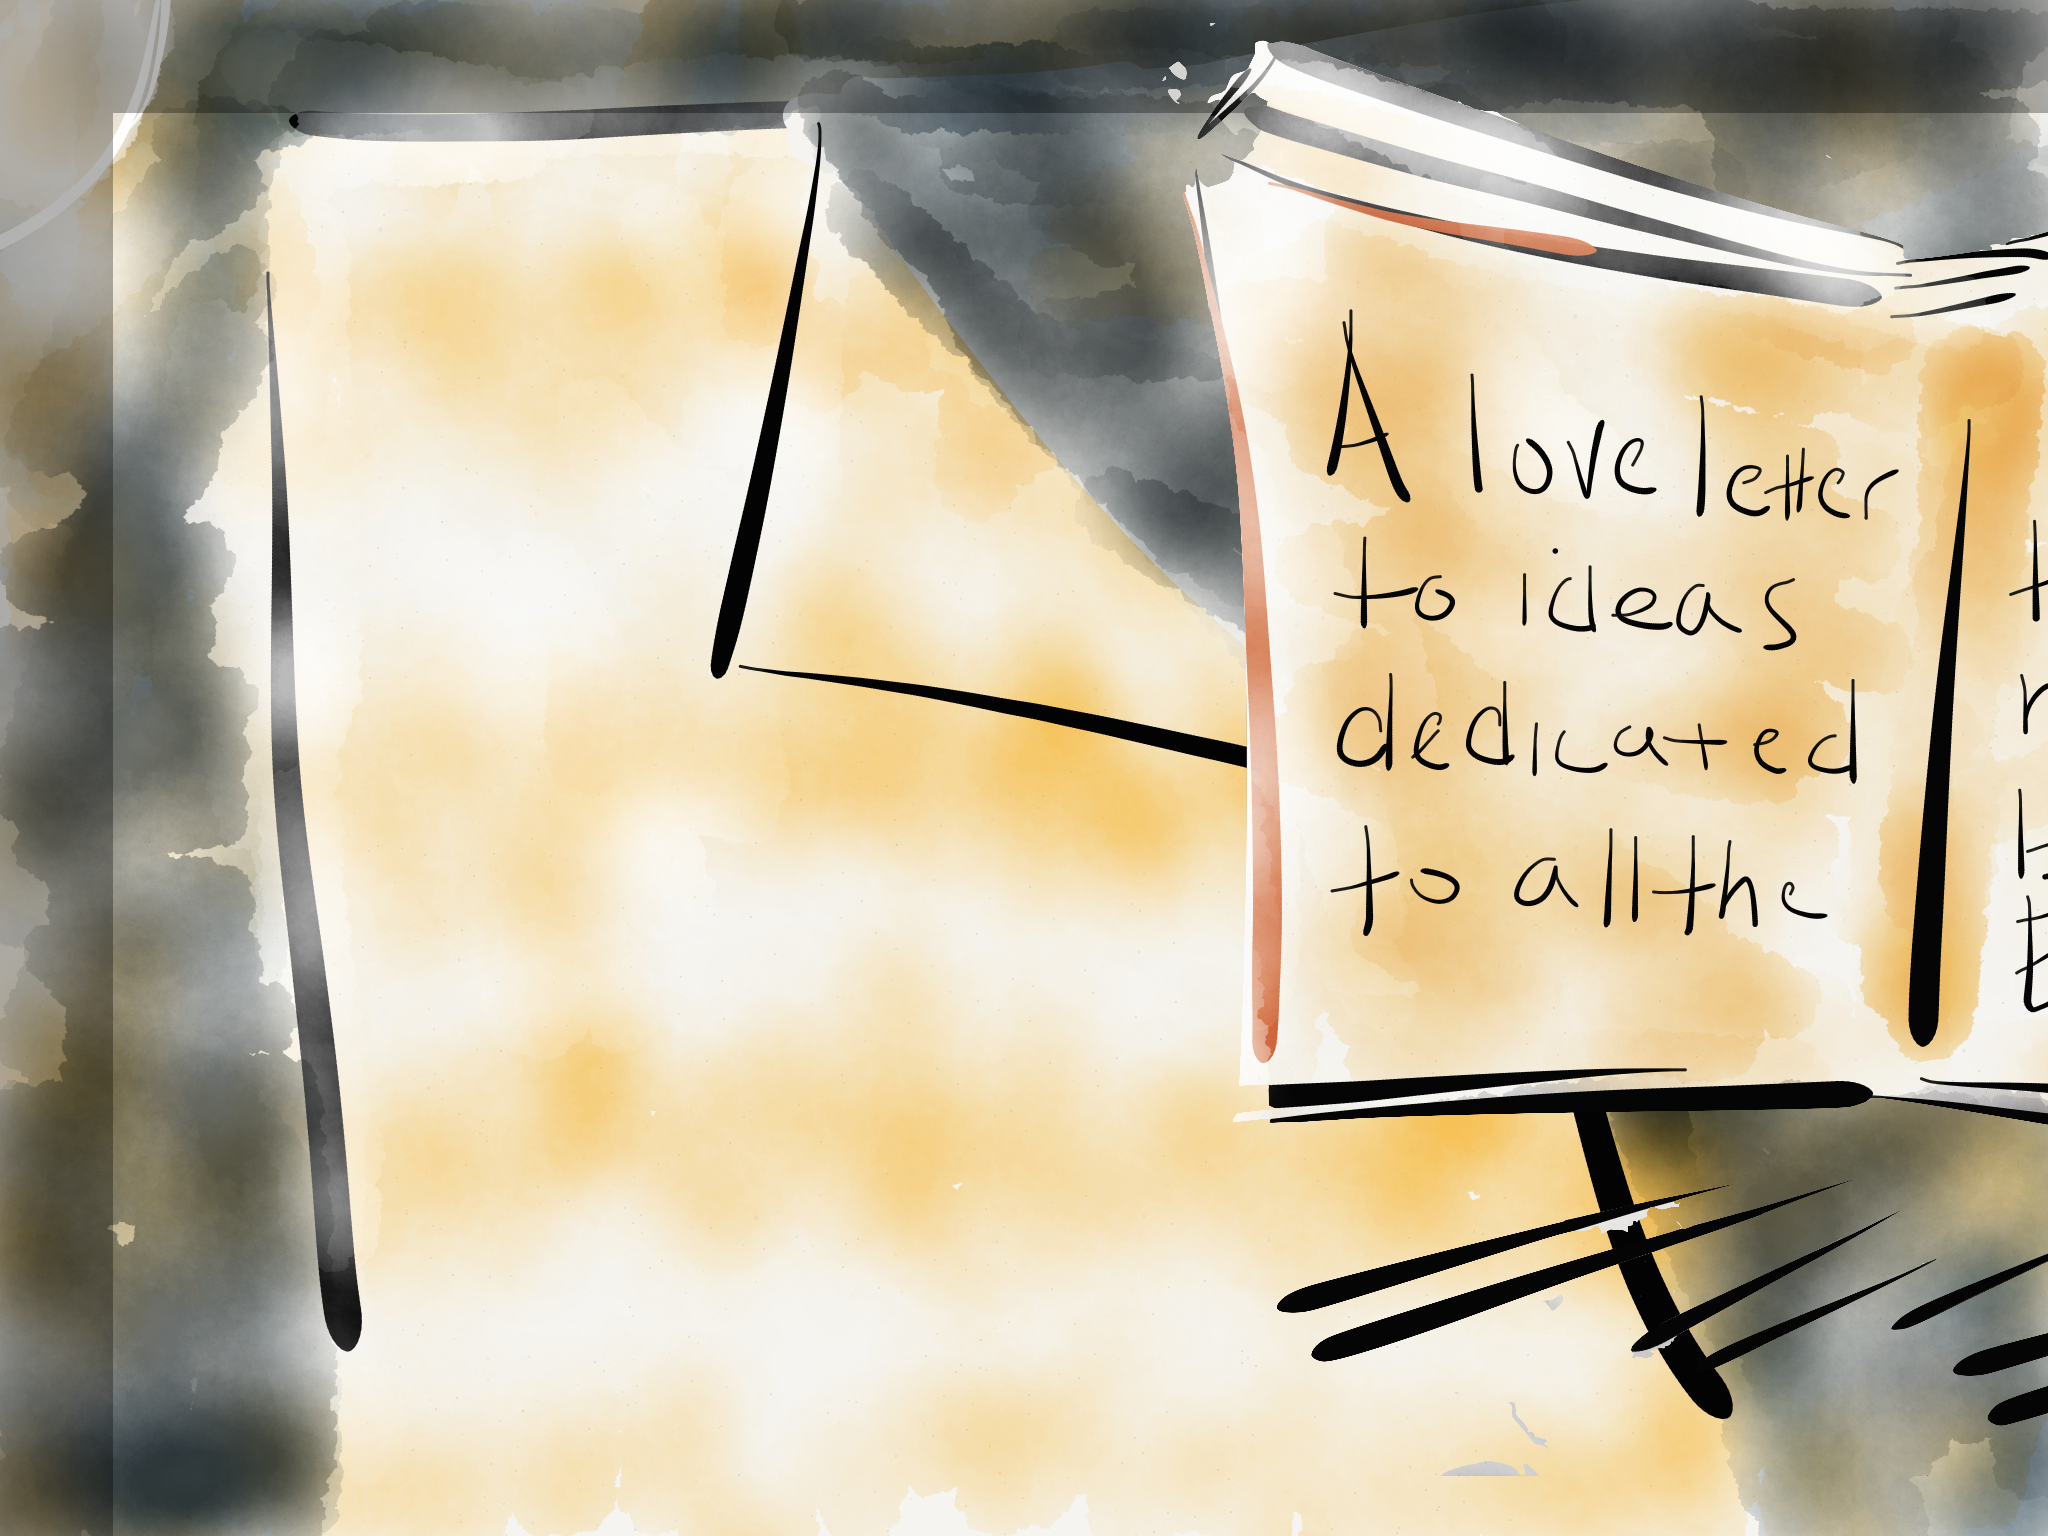 A love letter
to ideas
dedicated
to all the